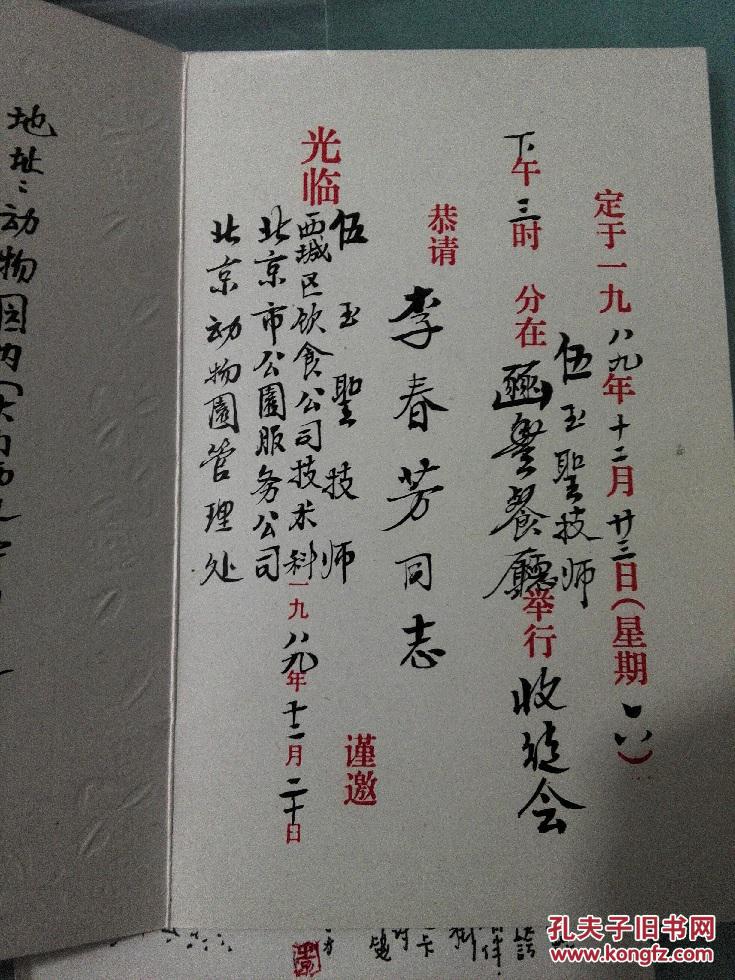 定于一九八九年十二月廿三日(星期六)
下午三时 分在豳豐餐廳举行收徒会
伍玉聖技师
恭请
李春芳同志
光临
伍玉聖技师
西城区饮食公司技术科
北京市公園服务公司
北京动物園管理处
谨邀
一九八九年十二月二十日
地址:动物园内
孔夫子旧书网
www.kongfz.com